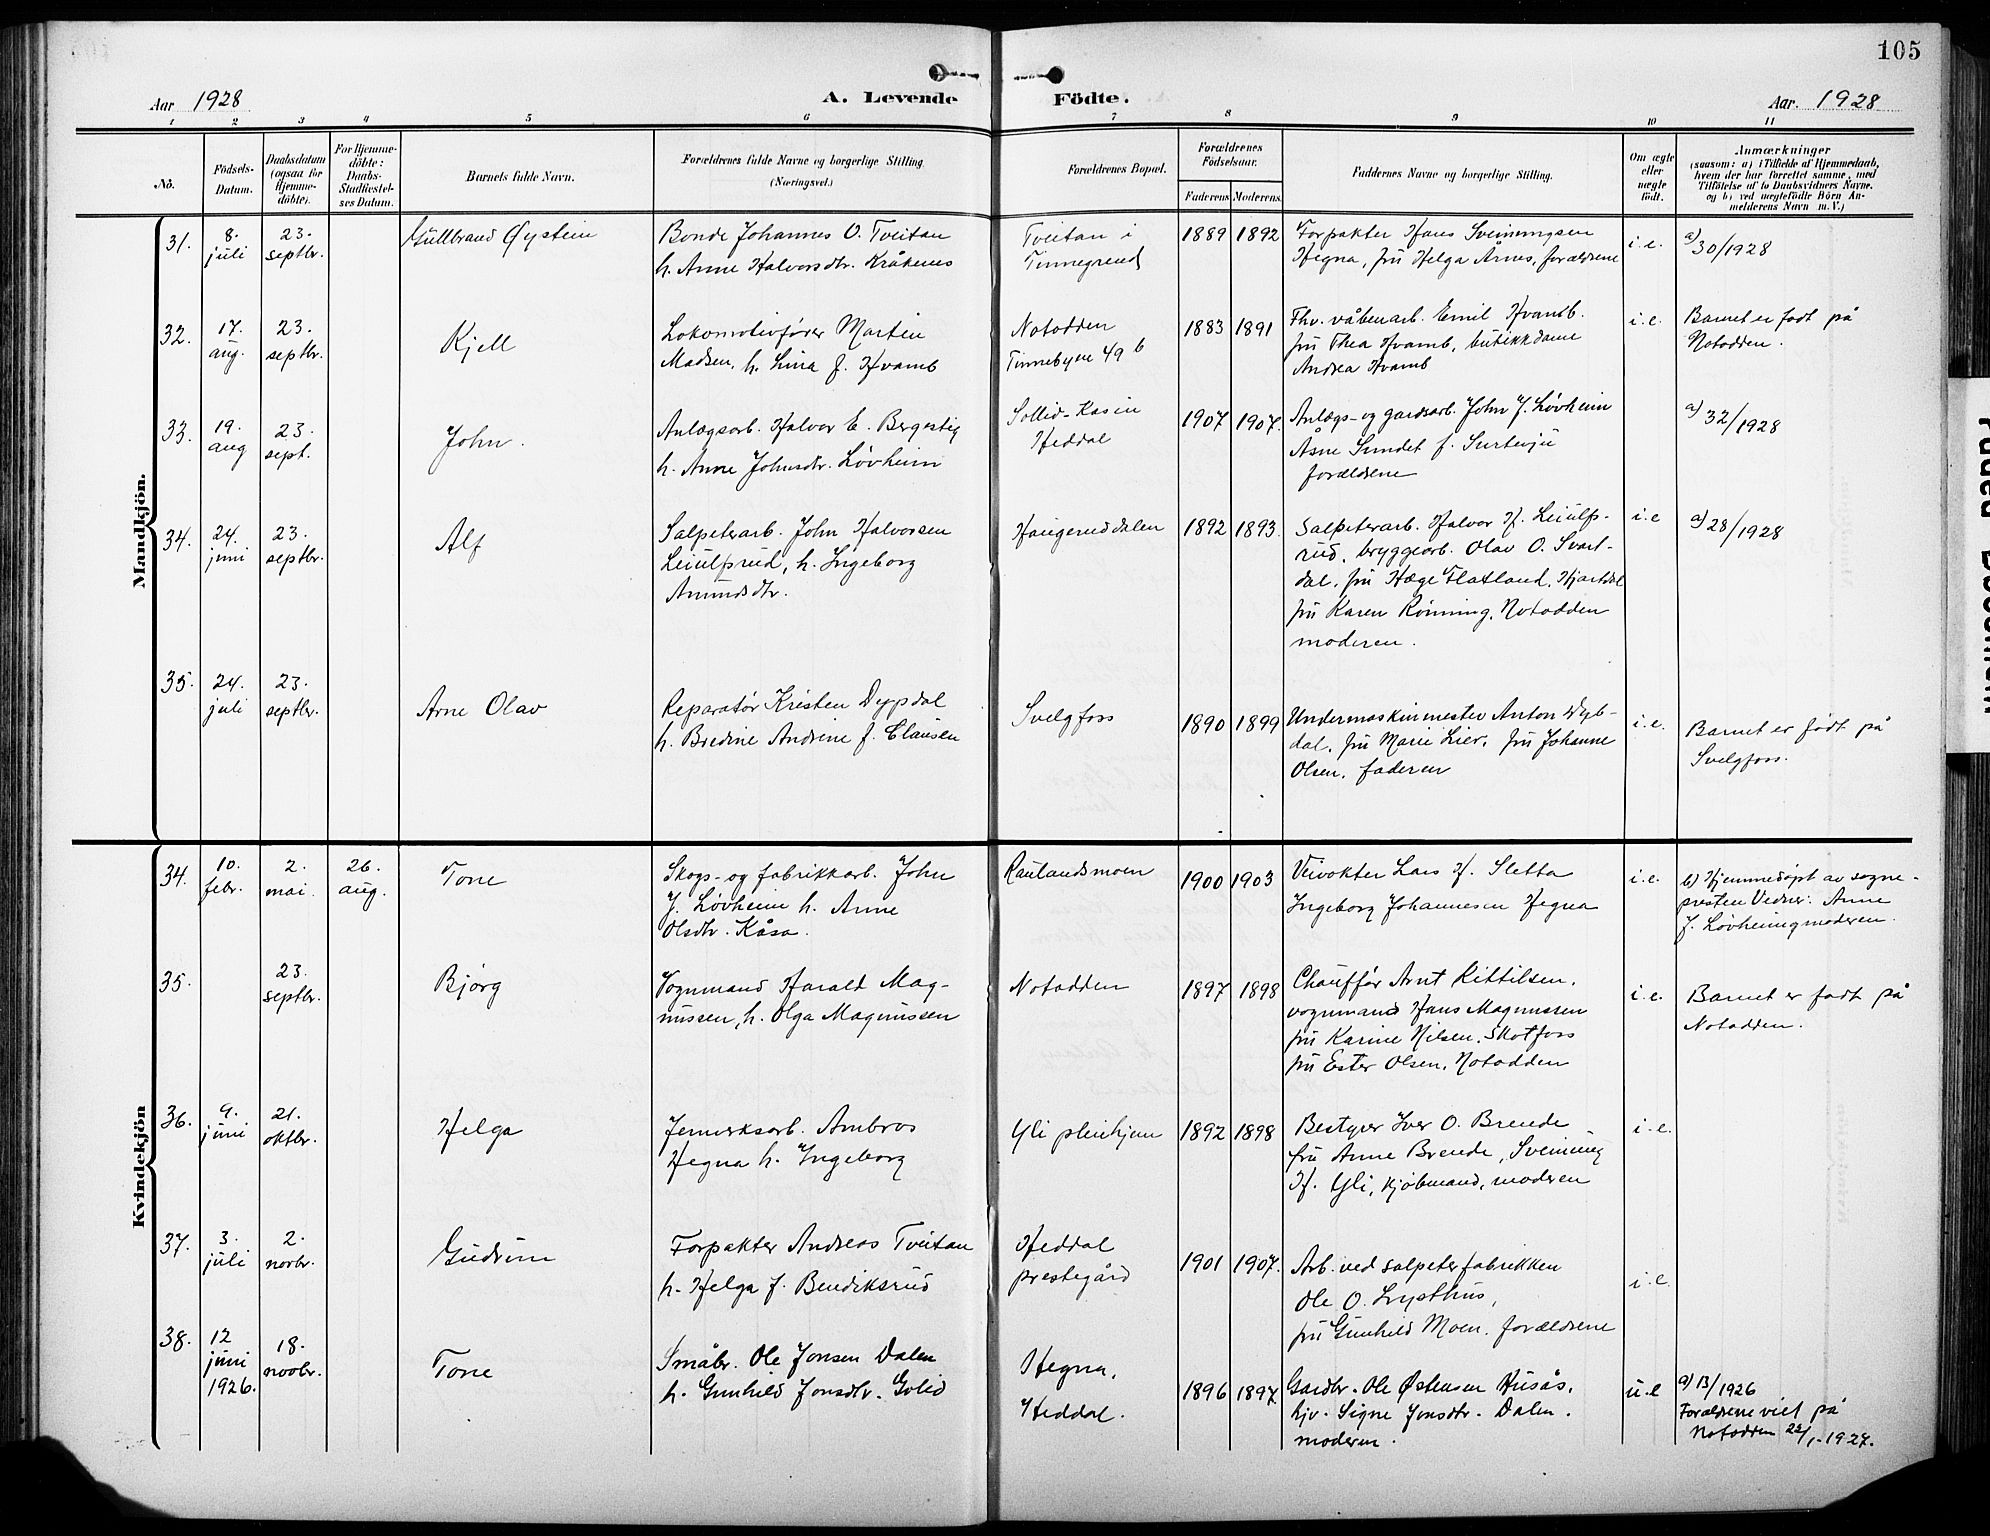 105
Aar 1928
A. Levende
Födte.
Aar. 1928
1 2 3 4 5 6 7 8 9 10 11
No.
Födsels-
Datum.
Daabsdatum
(ogsaa for
Hjemme-
döbte).
For Hjemme-
döbte:
Daabs-
Stadfæstel-
ses Datum.
Barnets fulde Navn.
Forældrenes fulde Navne og borgerlige Stilling
(Næringsvei.)
Forældrenes Bopæl.
Forældrenes
Födselsaar.
Faderens
Moderens.
Faddernes Navne og borgerlige Stilling.
Om ægte
eller
uægte
födt.
Anmærkninger
(saasom: a) i Tilfælde af Hjemmedaab,
hvem der har forrettet samme, med
Tilföielse af to Daabsvidners Navne,
og b) ved uægtefödte Börn An-
melderens Navn m. V.)
Mandkjön.
31.
8.
juli
23.
septbr.
Gullbrand Øystein
Bonde Johannes O. Tveitan
h. Anne Halvorsdtr. Kråkenes
Tveitan i
Tinnegrend
1889 1892
Forpakter Hans Sveinungsen
Hegna, fru Helga Årnes, forældrene
i. e.
a) 30/1928
32.
17.
aug.
23.
septbr.
Kjell
Lokomotivfører Martin
Madsen, h. Lina f. Hvamb
Notodden
Tinnebyen 49 b
1883 1891
Fhv. våbenarb. Emil Hvamb.
fru Thea Hvamb, butikkdame
Andrea Hvamb
i. e.
Barnet er født på
Notodden.
33.
19.
aug
23.
sept.
John.
Anlægsarb. Halvor E. Bergestig
h. Anne Johnsdtr. Løvheim
Sollid-Kasin
Heddal
1907 1907.
Anlægs- og gardsarb. John J. Løvheim
Åsne Sundet f. Surtevju
forældrene
a) 32/1928
34.
24.
juni
23.
septbr.
Alf
Salpeterarb. John Halvorsen
Leiulfsrud, h. Ingeborg
Amundsdtr.
Haugeruddalen
1892 1893.
Salpeterarb. Halvor H. Leiulfs-
rud, bryggearb. Olav O. Svart-
dal, fru Hæge Flatland, Hjartdal
fru Karen Rønning, Notodden
moderen.
i. e
a) 28/1928
35.
24.
juli
23.
septbr.
Arne Olav
Reparatør Kristen Dypdal
h. Bredine Andrine f. Clausen
Svelgfoss
1890 1899
Undermaskinmester Anton Dyb-
dal, fru Marie Lier, fru Johanne
Olsen, faderen
i. e.
Barnet er født på
Svelgfoss.
Kvindekjön
34.
10.
febr.
2.
mai.
26.
aug.
Tone
Skogs- og fabrikkarb. John
J. Løvheim h. Anne
Olsdtr. Kåsa.
Raulandsmoen
1900 1903
Veivokter Lars H. Sletta
Ingeborg Johannesen Hegna
i. e.
b) Hjemmedøpt av sogne-
presten Vidner: Anne
J. Løvheim og moderen.
35.
23.
septbr.
Bjørg
Vognmand Harald Mag-
nussen, h. Olga Magnussen
Notodden
1897 1898
Chauffør Arnt Kittilsen,
vognmand Hans Magnussen
fru Karine Nilsen, Skotfoss
fru Ester Olsen, Notodden
i. e.
Barnet er født på
Notodden.
36.
9.
juni
21.
oktbr.
Helga
Jernverksarb. Ambros
Hegna h. Ingeborg
Yli pleiehjem
1892 1898
Bestyrer Iver O. Brende
fru Anne Brende, Sveinung
H. Yli, kjøbmand, moderen
i. e.
37.
3.
juli
2.
novbr.
Gudrun
Forpakter Andreas Tveitan
h. Helga f. Bendiksrud
Heddal
prestegård
1901 1907.
Arb. ved salpeterfabrikken
Ole O. Lysthus,
fru Gunhild Moen, forældrene
i. e.
38.
12
juni
1926.
18.
novbr.
Tone
Småbr. Ole Jonsen Dalen
h. Gunhild Jonsdtr. Golid
Hegna,
Heddal.
1896 1897
Gardbr. Ole Østensen Husås,
hjv. Signe Jonsdtr. Dalen.
moderen.
u. e
a) 13/1926
Forældrene viet på
Notodden 22/1-1927.